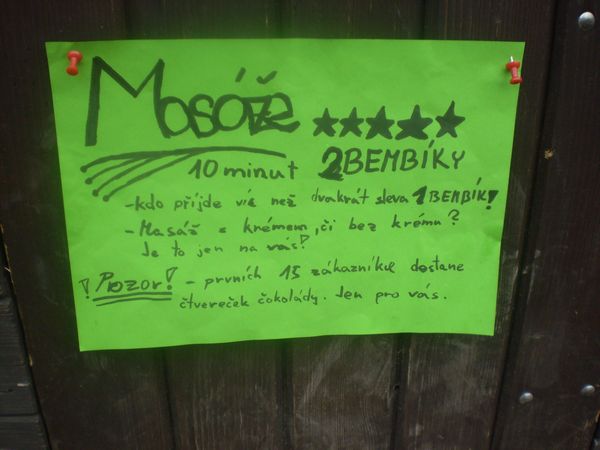 Masáže
10 minut 2BEMBÍKY
-kdo příjde víc než dvakrát sleva 1 BEMBÍK!
-Masáž s krémem, či bez krému?
Je to jen na vás!
! Pozor! - prvních 15 zákazníků dostane
čtvereček čokolády. Jen pro vás.